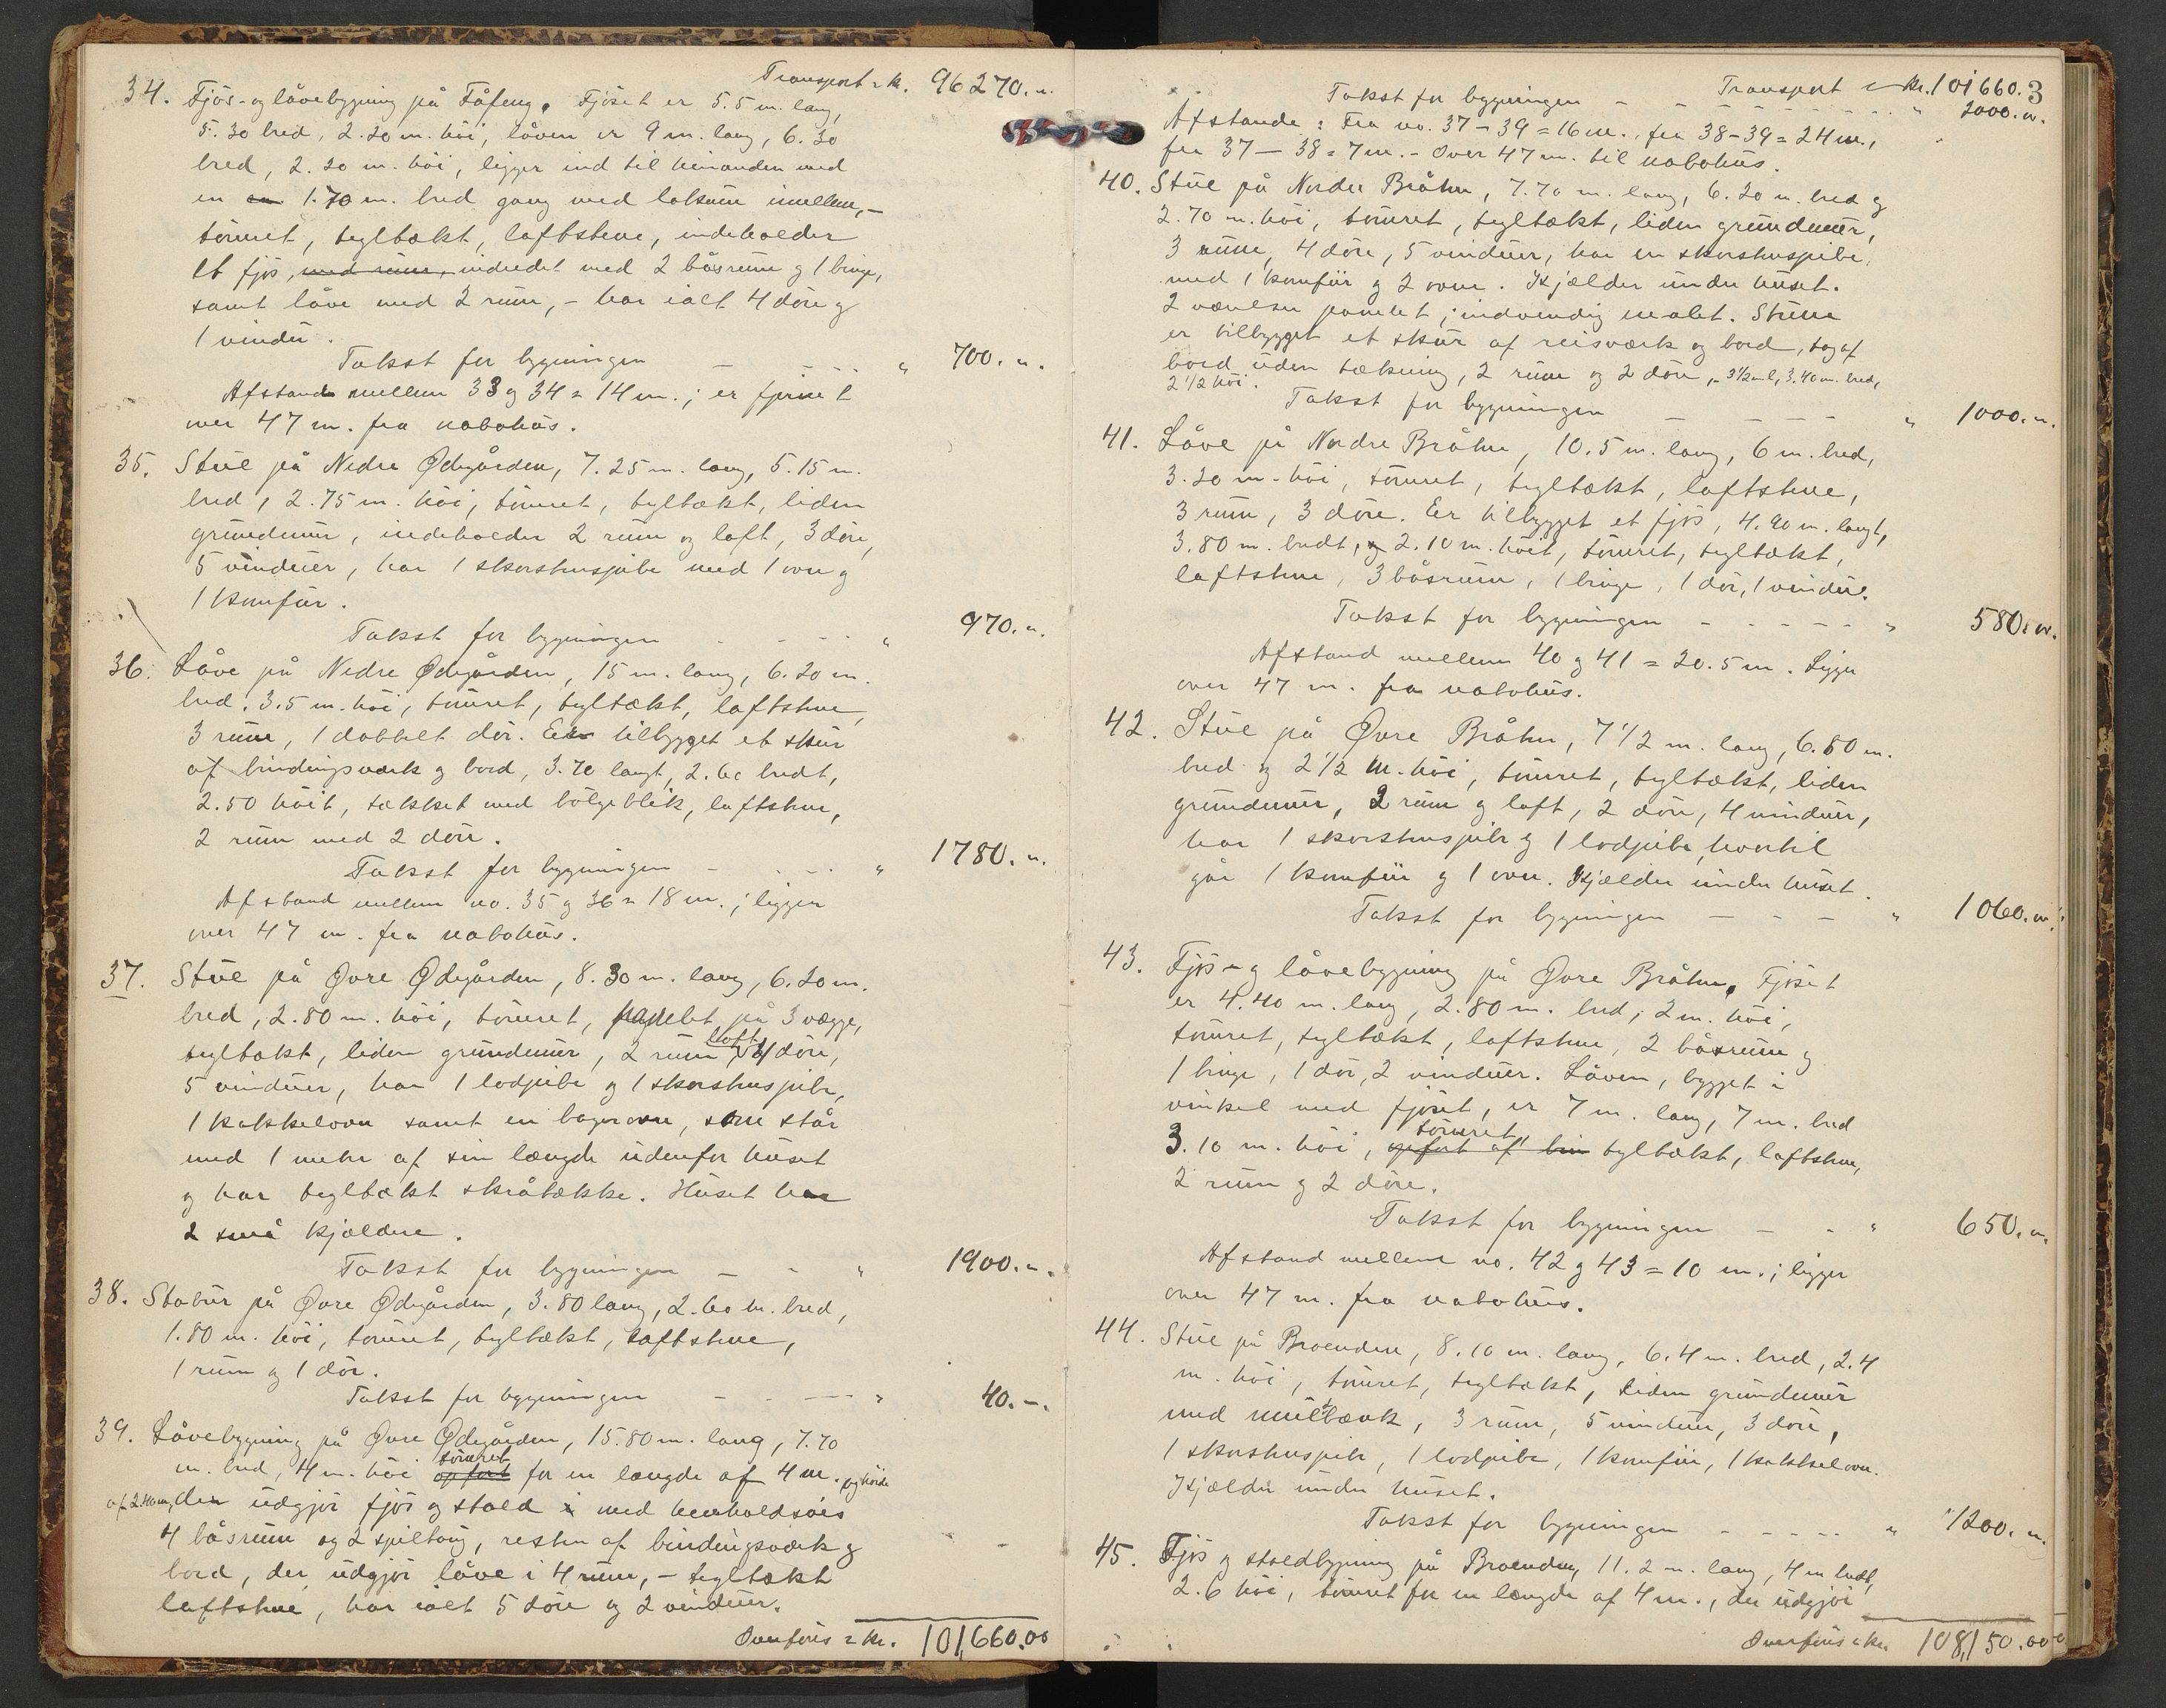 Transport kr. 96270.„
34. Fjös- og låvebygning på Fåfeng. Fjöset er 5.5 m. lang,
5.30 bred, 2.20 m. höi, låven er 9 m. lang, 6.30
bred, 2.20 m. höi, ligger ind til hinanden med
en 1.70 m. bred gang med lobrum imellem, –
tömret, tegltækt, loftshue, indeholder
et fjös, med rum, indredet med 2 båsrum og 1 binge,
samt låve med 2 rum, – har ialt 4 döre og
1 vindu.
Takst for bygningen – – – – „ 700. „.
Afstand mellem 33 og 34 = 14 m.; er fjernet
over 47 m. fra nabohus.
35. Stue på Nedre Ødegården, 7.25 m. lang, 5.15 m.
bred, 2.75 m. höi, tömret, tegltækt, liden
grundmur, indeholder 2 rum og loft, 3 döre,
5 vinduer, har 1 skorstenspibe med 1 ovn og
1 komfur.
Takst for bygningen – – – – „ 970. „.
36. Låve på Nedre Ødegården, 15 m. lang, 6.20 m.
bred, 3.5 m. höi, tömret, tegltækt, loftshue,
3 rum, 1 dobbelt dör. Er tilbygget et skur
af bindingsværk og bord, 3.70 langt, 2.60 bredt,
2.50 höit, tækket med bölgeblik, loftshue,
2 rum med 2 döre.
Takst for bygningen – – – – „ 1780. „.
Afstand mellem no. 35 og 36 = 18 m.; ligger
over 47 m. fra nabohus.
37. Stue på Øvre Ødegården, 8.30 m. lang, 6.20 m.
bred, 2.80 m. höi, tömret, panelet på 3 vægge,
tegltækt, liden grundmur, 2 rum, loft, 4 döre,
5 vinduer, har 1 lodpibe og 1 skorstenspibe,
1 kakkelovn samt en bagerovn, som står
med 1 meter af sin længde udenfor huset
og har tegltækt skråtække. Huset har
2 små kjældere.
Takst for bygningen – – „ 1900. „.
38. Stabur på Øvre Ødegården, 3.80 lang, 2.60 m. bred,
1.80 m. höi, tömret, tegltækt, loftshue,
1 rum og 1 dör.
Takst for bygningen – – – – „ 40. –.
39. Låvebygning på Øvre Ødegården, 15.80 m. lang, 7.70
m. bred, 4 m. höi opfört tömret for en længde af 4 m. og höide
af 2.40 m, der udgjör fjös og stald med henholdsvis
4 båsrum og 2 spiltoug, resten af bindingsværk og
bord, der udgjör låve i 4 rum, – tegltækt
loftshue, har ialt 5 döre og 2 vinduer.
Overföris kr. 101,660.00
Transport kr. 101660. 3
Takst for bygningen – – – – – „ 2000. „.
Afstande: Fra no. 37 – 39 = 16 m., fra 38 – 39 = 24 m.,
fra 37 – 38 = 7 m. – Over 47 m. til nabohus.
40. Stue på Nordre Bråten, 7.70 m. lang, 6.20 m. bred og
2.70 m. höi, tömret, tegltækt, liden grundmur,
3 rum, 4 döre, 5 vinduer, har en skorstenspibe
med 1 komfur og 2 ovne. Kjælder under huset.
2 værelser panelet, indvendig malet. Stuen
er tilbygget et skur af reisværk og bord, tag af
bord uden tækning, 2 rum og 2 döre, – 3 1/2 m l, 3.40 m. bred,
2 1/2 höi.
Takst for bygningen – – – – „ 1000. „.
41. Låve på Nordre Bråten, 10.5 m. lang, 6 m. bred,
3.20 m. höi, tömret, tegltækt, loftshue,
3 rum, 3 döre. Er tilbygget et fjös, 4.90 m. langt,
3.80 m. bredt, 2.10 m. höit, tömret, tegltækt,
loftshue, 3 båsrum, 1 binge, 1 dör, 1 vindue.
Takst for bygningen – – – – – „ 580. „.
Afstand mellem 40 og 41 = 20.5 m. Ligger
over 47 m. fra nabohus.
42. Stue på Øvre Bråten, 7 1/2 m. lang, 6.80 m.
bred og 2 1/2 m. höi, tömret, tegltækt, liden
grundmur, 2 rum og loft, 2 döre, 4 vinduer,
har 1 skorstenspibe og 1 lodpibe, hvortil
går 1 komfur og 1 ovn. Kjælder under huset.
Takst for bygningen – – – „ 1060. „.
43. Fjös- og låvebygning på Øvre Bråten. Fjöset
er 4.40 m. lang, 2.80 m. bred, 2 m. höi,
tömret, tegltækt, loftshue, 2 båsrum og
1 binge, 1 dör, 2 vinduer. Låven, bygget i
vinkel med fjöset, er 7 m. lang, 7 m. bred
3.10 m. höi, opfört af bin tömret, tegltækt, loftshue,
2 rum og 2 döre.
Takst for bygningen – – „ 650. „.
Afstand mellem no. 42 og 43 = 10 m.; ligger
over 47 m. fra nabohus.
44. Stue på Broenden, 8.10 m. lang, 6.4 m. bred, 2.4
m. höi, tömret, tegltækt, liden grundmur
med muldbænk, 3 rum, 5 vinduer, 3 döre,
1 skorstenspibe, 1 lodpibe, 1 komfur, 1 kakkelovn.
Kjælder under huset.
Takst for bygningen – – – – – „ 1200. „.
45. Fjös og staldbygning på Broenden, 11.2 m. lang, 4 m bredt,
2.6 höi, tömret for en længde af 4 m., der udgjör
Overföris kr. 108,150.00